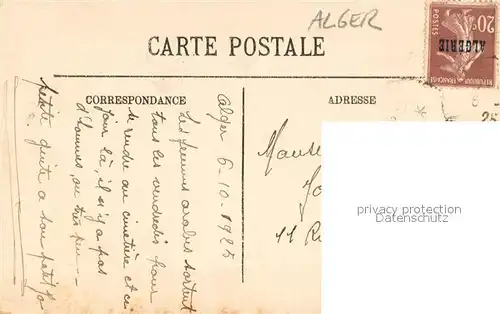 ALGER
20c
POSTES
ALGÉRIE
REPUBLIQUE FRANÇAISE
CARTE POSTALE
CORRESPONDANCE
ADRESSE
Alger 6-10-1925
Les femmes arabes sortent
tous les vendredis pour
se rendre au cimetière et ce
jour là, il n'y a pas
d'hommes, ou très peu
petite
a
25
11 R
privacy protection
Datenschutz